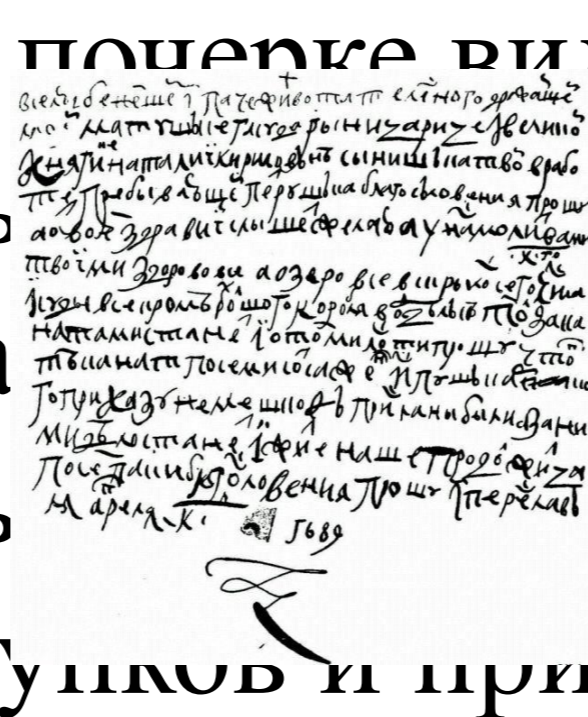 почерке ви
вселюбенеше i паче живота теленого дражаше
моеi матушъке гасударыни царице i великоi
княгине наталиi кириловнъ сынишька твоi в рабо
те пребывающе петрушька благословения прошу
а о твое здравиi слышеть желаю а у нас молитвами
твоiми здорово все а озеро все вскрылось сего к го числа
i суды все кромъ болшого корабля в отдълке токо за кана
натами стане i о том милости прошу што
тъ канаты по семи сот сажен iс пушькаско
го приказу не мешкоф присланы были а за ни
ми дъло стане i житие наше продолжица
по сем паки благословения прошу iс переславъля
апреля к 1689
упков и при